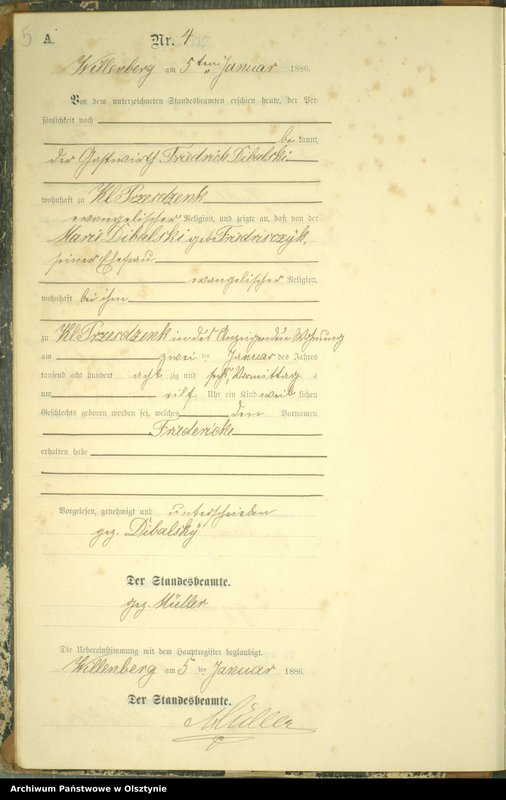 5
A.
Nr. 4
Willenberg am 5ten Januar 1886.
Vor dem unterzeichneten Standesbeamten erschien heute, der Per-
sönlichkeit nach
be kannt,
der Gastwirth Friedrich Dibalski
wohnhaft zu Kl. Przesdzenk
evangelischer Religion, und zeigte an, daß von der
Marie Dibalski geb.
seiner Ehefrau
evangelischer Religion,
wohnhaft bei ihm
zu Kl. Przesdzenk in des Anzeigenden Wohnung
am zwei ten Januar des Jahres
tausend acht hundert acht zig und sechs, Vormittag s
um eilf Uhr ein Kind weib lichen
Geschlechts geboren worden sei, welches den Vornamen
Friedericke
erhalten habe
Vorgelesen, genehmigt und unterschrieben
gez. Dibalsky
Der Standesbeamte.
gez. Müller
Die Uebereinstimmung mit dem Hauptregister beglaubigt.
Willenberg am 5 ten Januar 1886.
Der Standesbeamte.
Müller
Archiwum Państwowe w Olsztynie